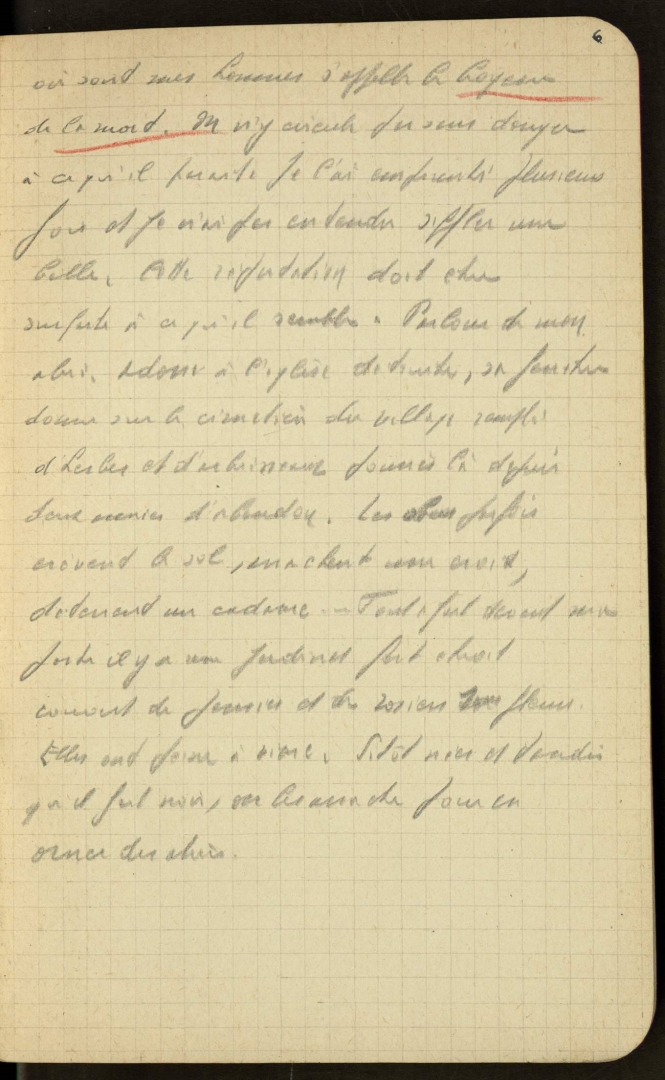 6
où sont mes hommes s'appelle le boyau
de la mort. On n'y circule pas sans danger
à ce qu'il paraît. Je l'ai emprunté plusieurs
fois et je n'ai pas entendu siffler une
balle. Cette réputation doit être
surfaite à ce qu'il semble. Parlons de mon
abri. Adossé à l'église détruite, sa fenêtre
donne sur le cimetière du village rempli
d'herbes et d'arbrisseaux poussés là depuis
deux années d'abandon. Les obus parfois
crèvent le sol, arrachent une croix,
déterrent un cadavre. Tout à fait devant ma
porte il y a un jardinet fort étroit
couvert de et de rosiers fleurs.
Elles ont peine à vivre. Sitôt nées et tandis
qu'il fait noir, on les arrache pour en
orner des abris.